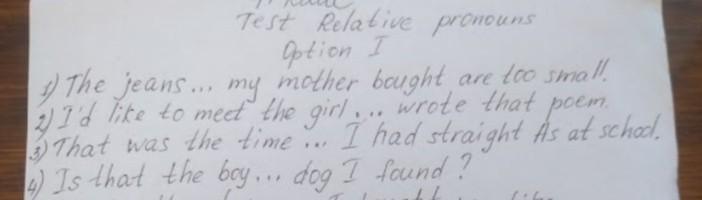 Test Relative pronouns
Option I
1) The jeans... my mother bought are too small.
2) I'd like to meet the girl... wrote that poem.
3) That was the time ... I had straight As at school.
4) Is that the boy... dog I found?